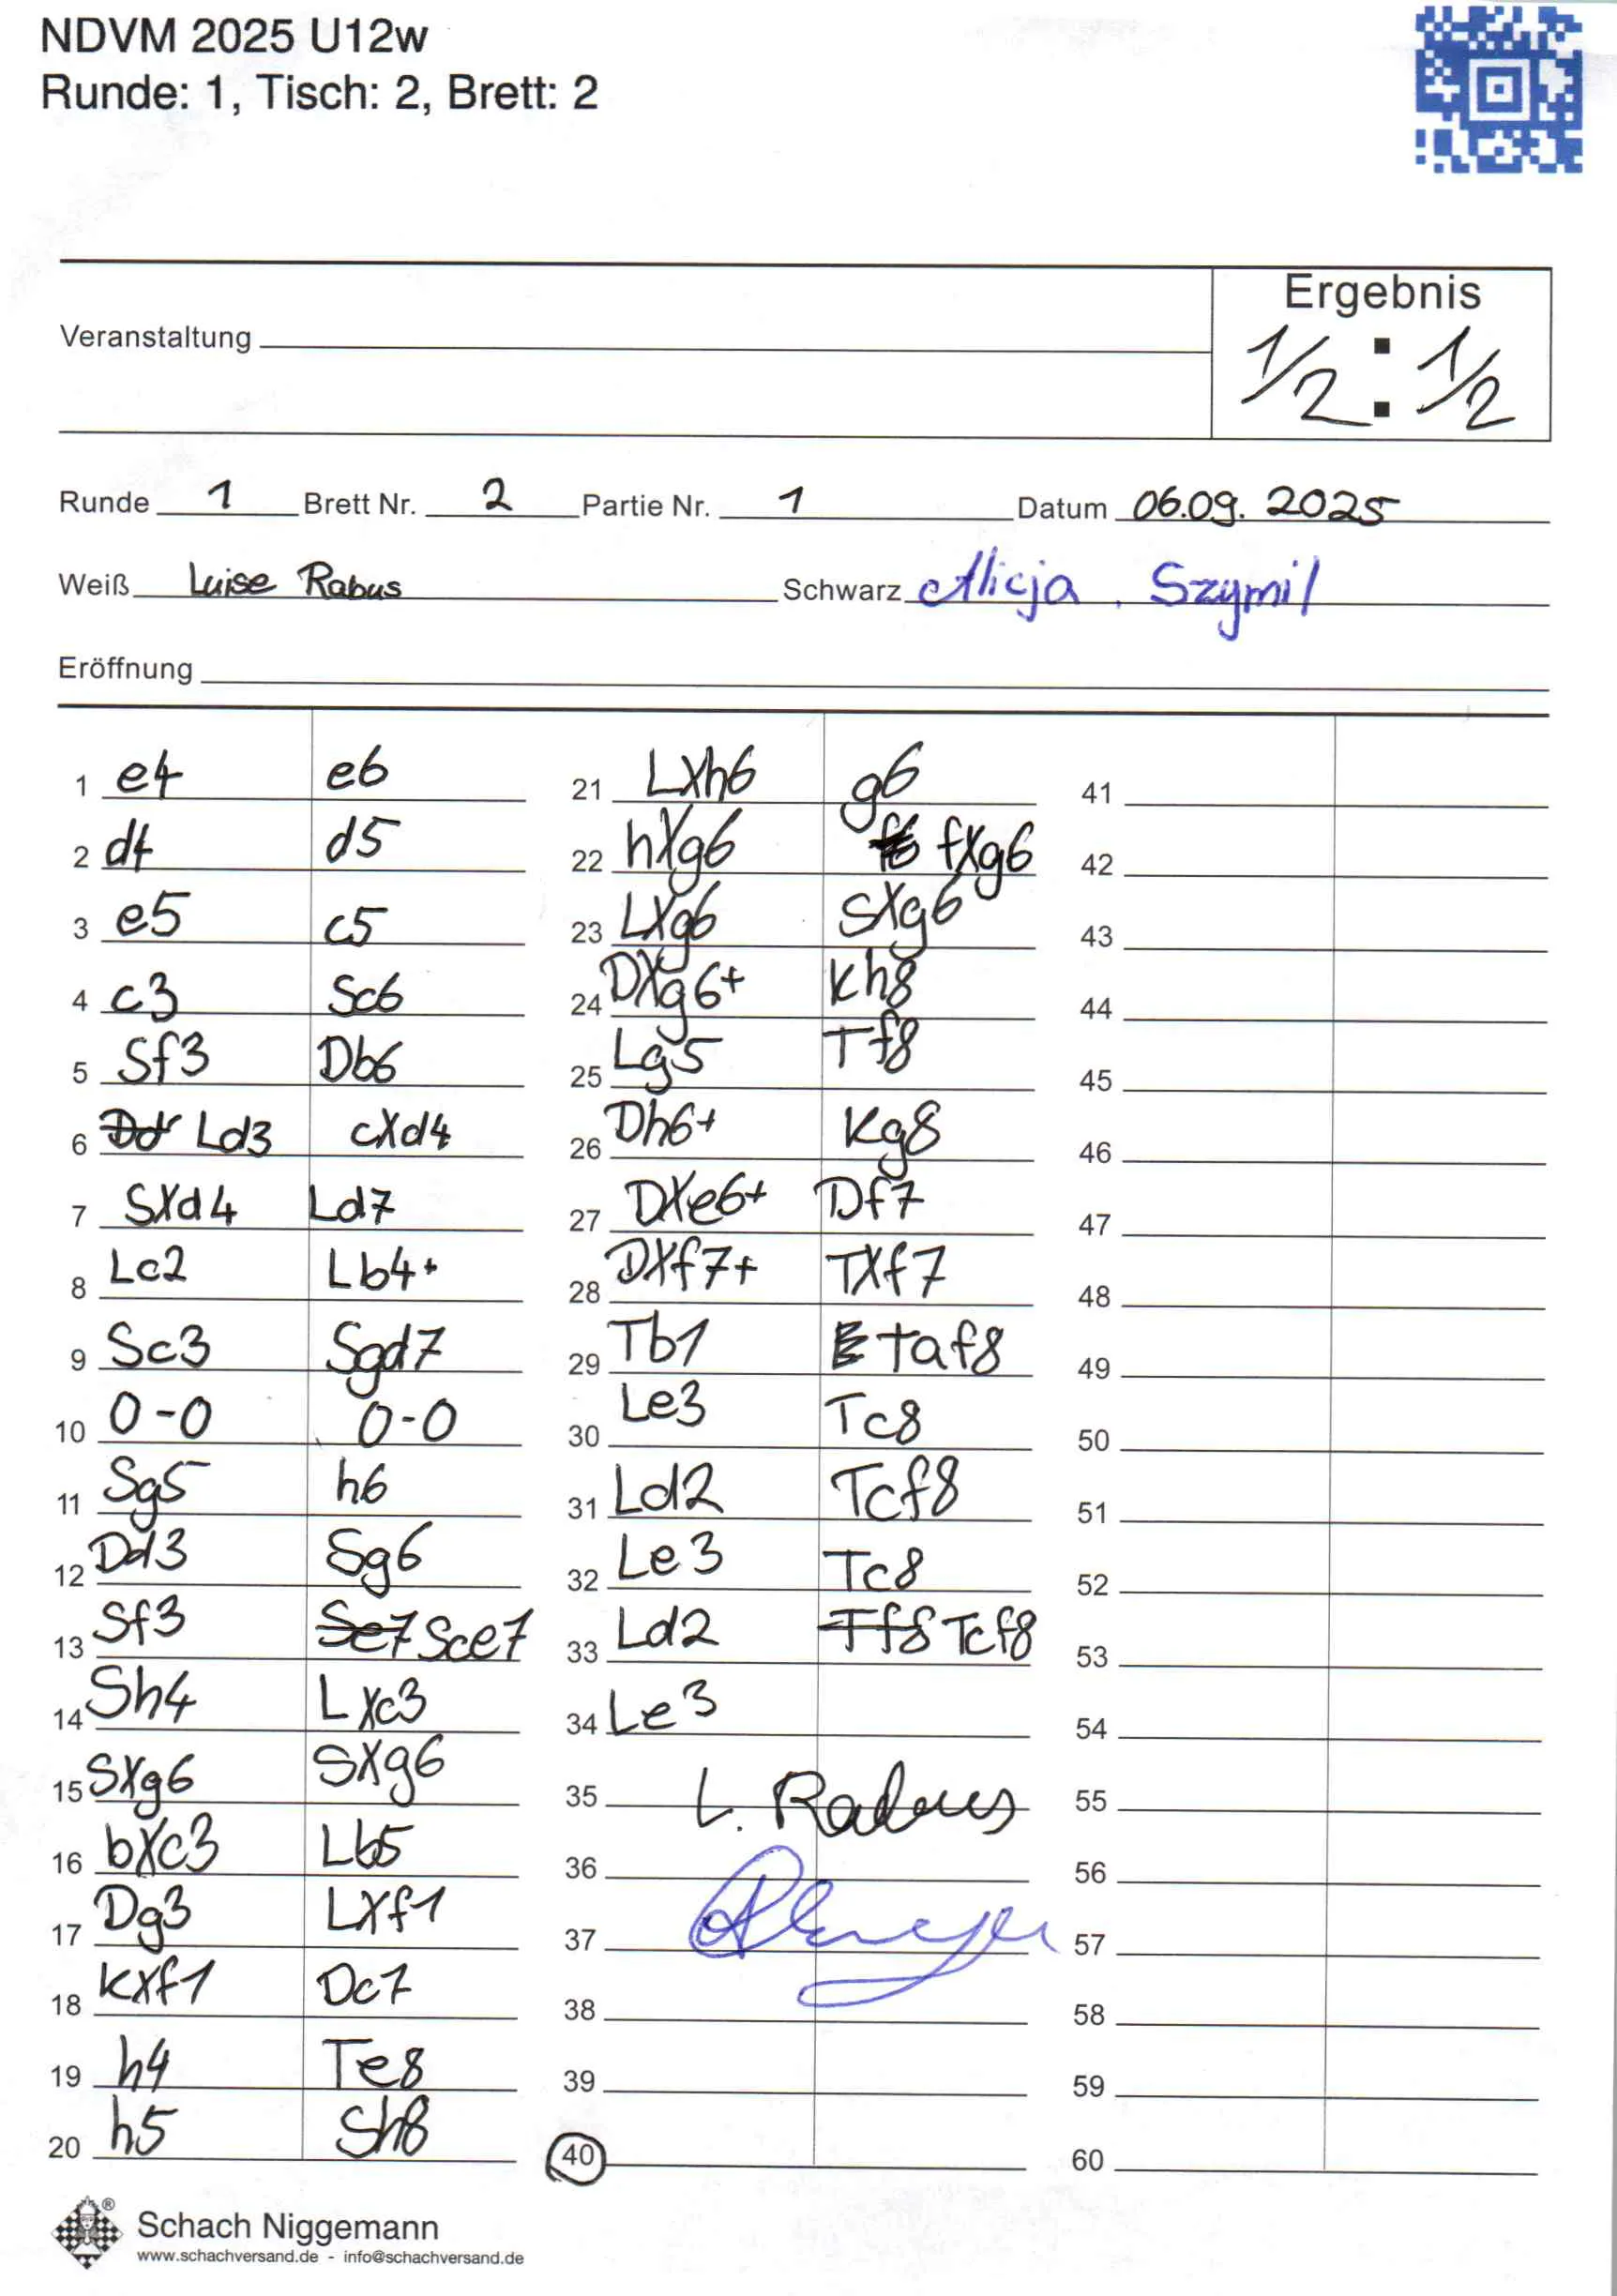 NDVM 2025 U12w
Runde: 1, Tisch: 2, Brett: 2
Ergebnis
Veranstaltung
1/2 : 1/2
Runde 1 Brett Nr. 2 Partie Nr. 1 Datum 06.09.2025
Weiß Luise Rabus Schwarz Alicja, Szymil
Eröffnung
1 e4 e6
2 d4 d5
3 e5 c5
4 c3 Sc6
5 Sf3 Db6
6 Ld3 cXd4
7 SXd4 Ld7
8 Lc2 Lb4+
9 Sc3 Sgd7
10 0-0 0-0
11 Sg5 h6
12 Dd3 Sg6
13 Sf3 Se7 Sce7
14 Sh4 LXc3
15 SXg6 SXg6
16 bXc3 Lb5
17 Dg3 LXf1
18 KXf1 Dc7
19 h4 Te8
20 h5 Sh8
21 LXh6 g6
22 hXg6 fXg6
23 LXg6 SXg6
24 DXg6+ Kh8
25 Lg5 Tf8
26 Dh6+ Kg8
27 DXe6+ Df7
28 DXf7+ TXf7
29 Tb1 taf8
30 Le3 Tc8
31 Ld2 Tcf8
32 Le3 Tc8
33 Ld2 Tf8 Tcf8
34 Le3
35 L. Rabus
36
37
38
39
40
41
42
43
44
45
46
47
48
49
50
51
52
53
54
55
56
57
58
59
60
Schach Niggemann
www.schachversand.de - info@schachversand.de